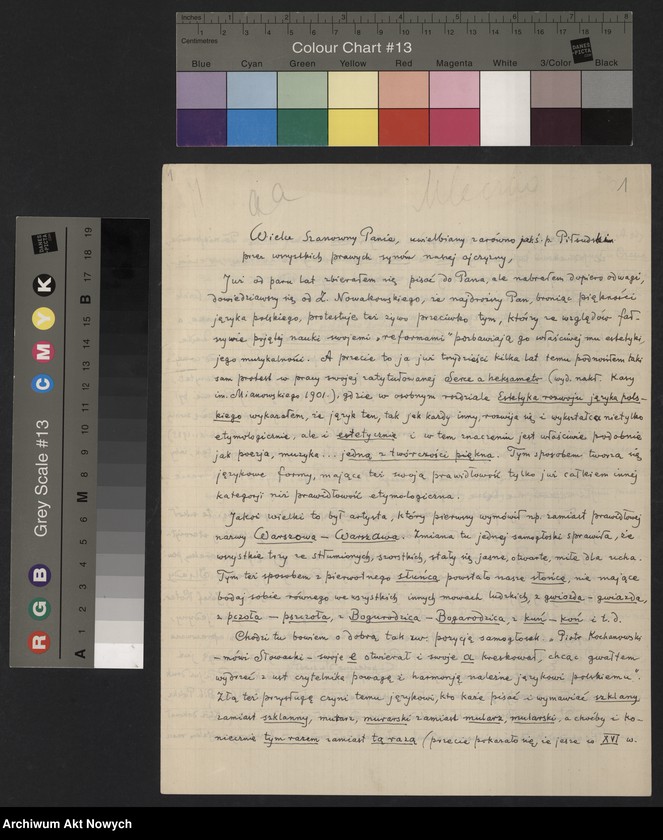 Inches 1 2 3 4 5 6 7 8
Centimetres 1 2 3 4 5 6 7 8 9 10 11 12 13 14 15 16 17 18 19
Colour Chart #13
DANES PICTA
Blue Cyan Green Yellow Red Magenta White 3/Color Black
Grey Scale #13
R G B C M Y K
DANES PICTA
A 1 2 3 4 5 6 M 8 9 10 11 12 13 14 15 B 17 18 19
aa
1
Wielce Szanowny Panie, uwielbiany zarówno jak ś. p. Piłsudski
przez wszystkich prawych synów naszej ojczyzny,
Już od paru lat zbierałem się pisać do Pana, ale nabrałem dopiero odwagi,
dowiedziawszy się od Z. Nowakowskiego, że najdroższy Pan, broniąc piękności
języka polskiego, protestuje też żywo przeciwko tym, którzy ze względów fał-
szywie pojętej nauki swojemi „reformami" pozbawiają go właściwej mu estetyki,
jego muzykalności. A przecie to ja już trzydzieści kilka lat temu podniosłem taki
sam protest w pracy swojej zatytułowanej Serce a heksametr (wyd. nakł. Kasy
im. Mianowskiego 1901.), gdzie w osobnym rozdziale Estetyka rozwoju języka pols-
kiego wykazałem, że język ten, tak jak każdy inny, rozwija się i wykształca nietylko
etymologicznie, ale i estetycznie i w tem znaczeniu jest właściwie podobnie
jak poezja, muzyka... jedną z twórczości piękna. Tym sposobem tworzą się
językowe formy, mające też swoją prawidłowość tylko już całkiem innej
kategorji niż prawidłowość etymologiczna.
Jakże wielki to był artysta, który pierwszy wymówił np. zamiast prawidłowej
nazwy Warszowa – Warszawa. Zmiana tu jednej samogłoski sprawiła, że
wszystkie trzy ze stłumionych, szorstkich, stały się jasne, otwarte, miłe dla ucha.
Tym też sposobem z pierwotnego słuńca powstało nasze słońce, nie mające
bodaj sobie równego we wszystkich innych mowach ludzkich, z gwiozda – gwiazda,
z pczoła – pszczoła, z Bogurodzica – Bogarodzica, z kuń – koń i t. d.
Chodzi tu bowiem o dobrą tak zw. pozycję samogłosek. „Piotr Kochanowski
– mówi Słowacki – swoje e otwierał i swoje a kreskował, chcąc gwałtem
wydrzeć z ust czytelnika powagę i harmonję należne językowi polskiemu".
Złą też przysługę czyni temu językowi, kto każe pisać i wymawiać szklany,
zamiast szklanny, mularz, murarski zamiast mularz, mularski, a choćby i ko-
niecznie tym razem zamiast tą razą (przecie pokazało się, że jeszcze w XVI w.
Archiwum Akt Nowych